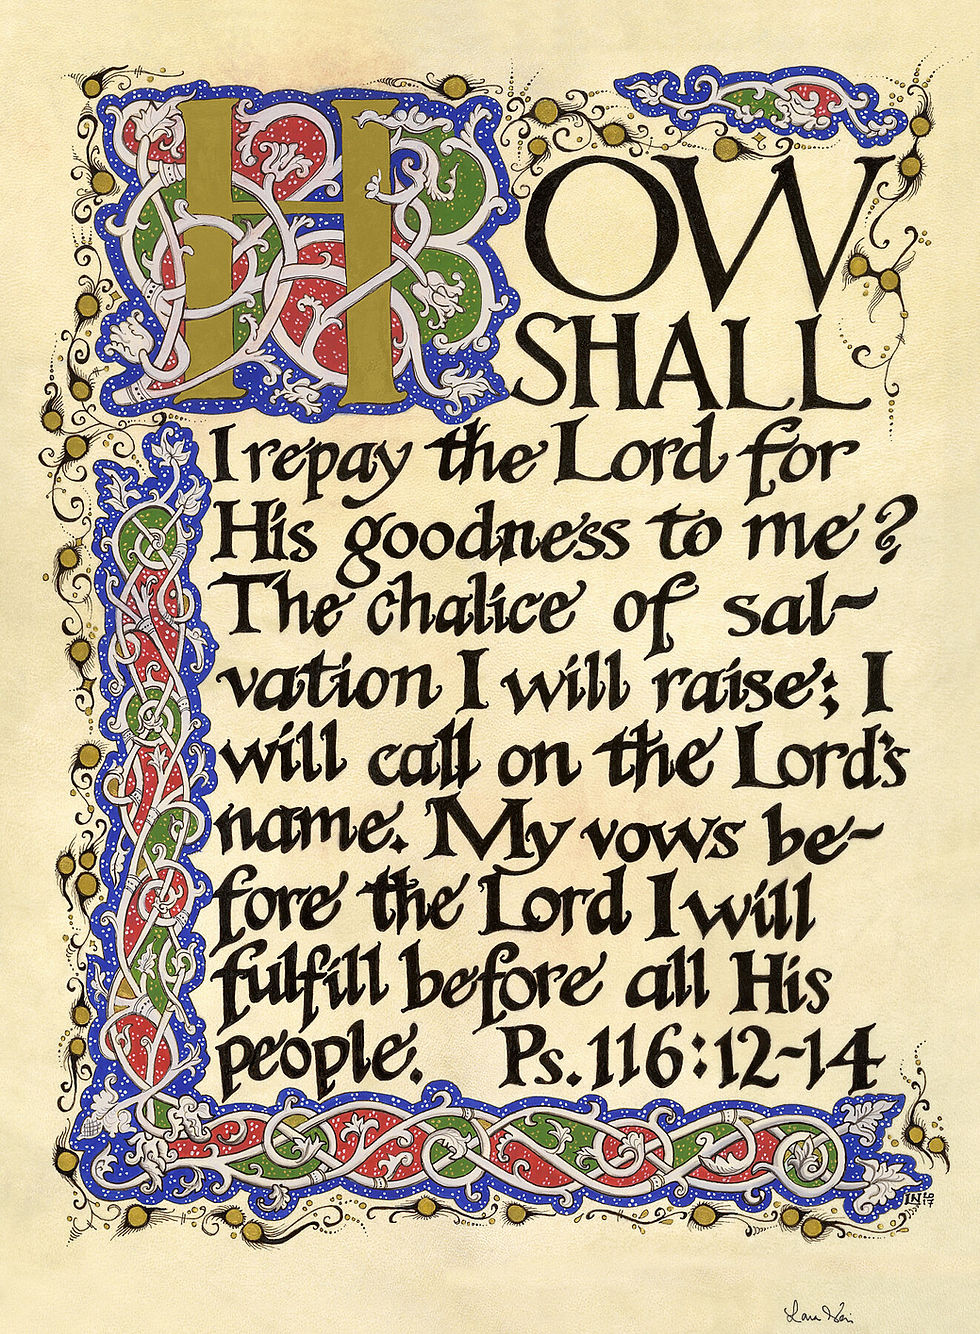 HOW
SHALL
I repay the Lord for
His goodness to me?
The chalice of sal~
vation I will raise; I
will call on the Lord's
name. My vows be~
fore the Lord I will
fulfill before all His
people. Ps. 116:12~14
IN 20
17